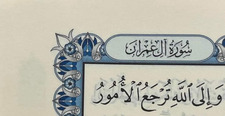 سُورَةُ آلِ عِمْرَان
وَإِلَى ٱللَّهِ تُرْجَعُ ٱلْأُمُورُ